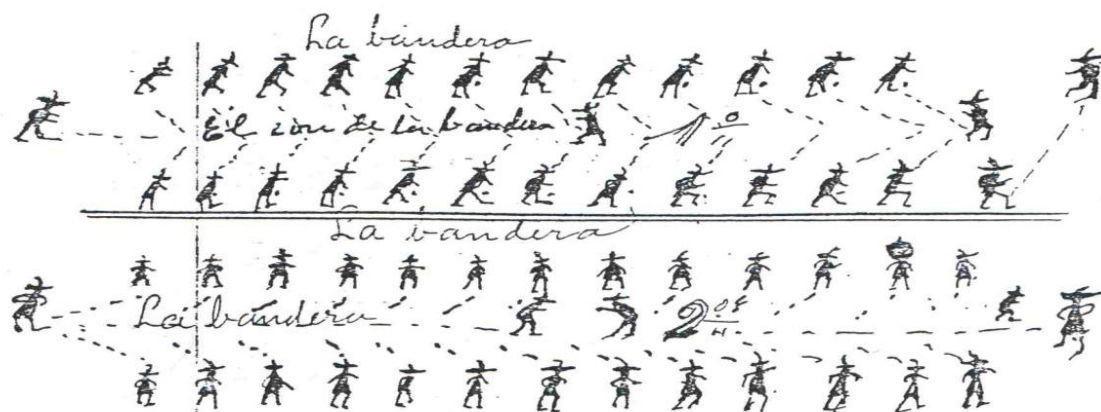 La bandera
El zon de la bandera 1º
La bandera
La bandera 2os